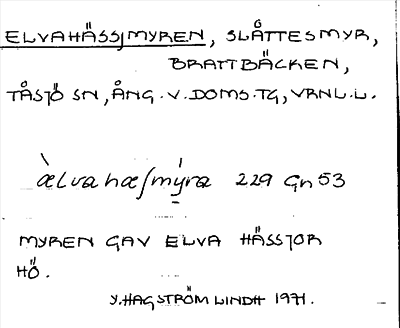 ELVAHÄSSJMYREN, SLÅTTESMYR,
BRATTBÄCKEN,
TÅSJÖ SN, ÅNG.V.DOMS.TG, VRNL.L.
ælvahæʃmýra 229 Gn 53
MYREN GAV ELVA HÄSSJOR
HÖ.
Y.HAGSTRÖM LINDH 1971.